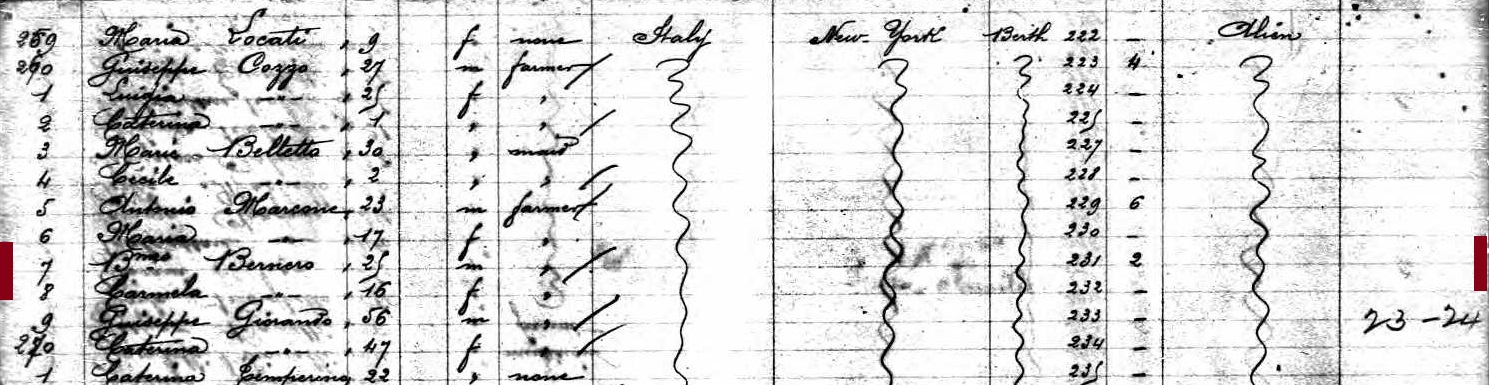 259 Maria Locati , 9 f none Italy New-York Berth 222 - Alien
260 Guiseppe Cozzo , 27 m farmer 223 4
1 Luigia -"- , 25 f , 224 -
2 Caterina -"- , 1 , , 225 -
3 Maria Belletto , 30 , maid 227 -
4 Cécile -"- , 2 , , 228 -
5 Antonio Marcone , 23 m farmer 229 6
6 Maria -"- , 17 f , 230 -
7 Bmeo Bernero , 25 m , 231 2
8 Carmela -"- , 16 f , 232 -
9 Guiseppe , 56 m , 233 - 23-24
270 Caterina -"- , 47 f , 234 -
1 Caterina , 22 , none 235 -